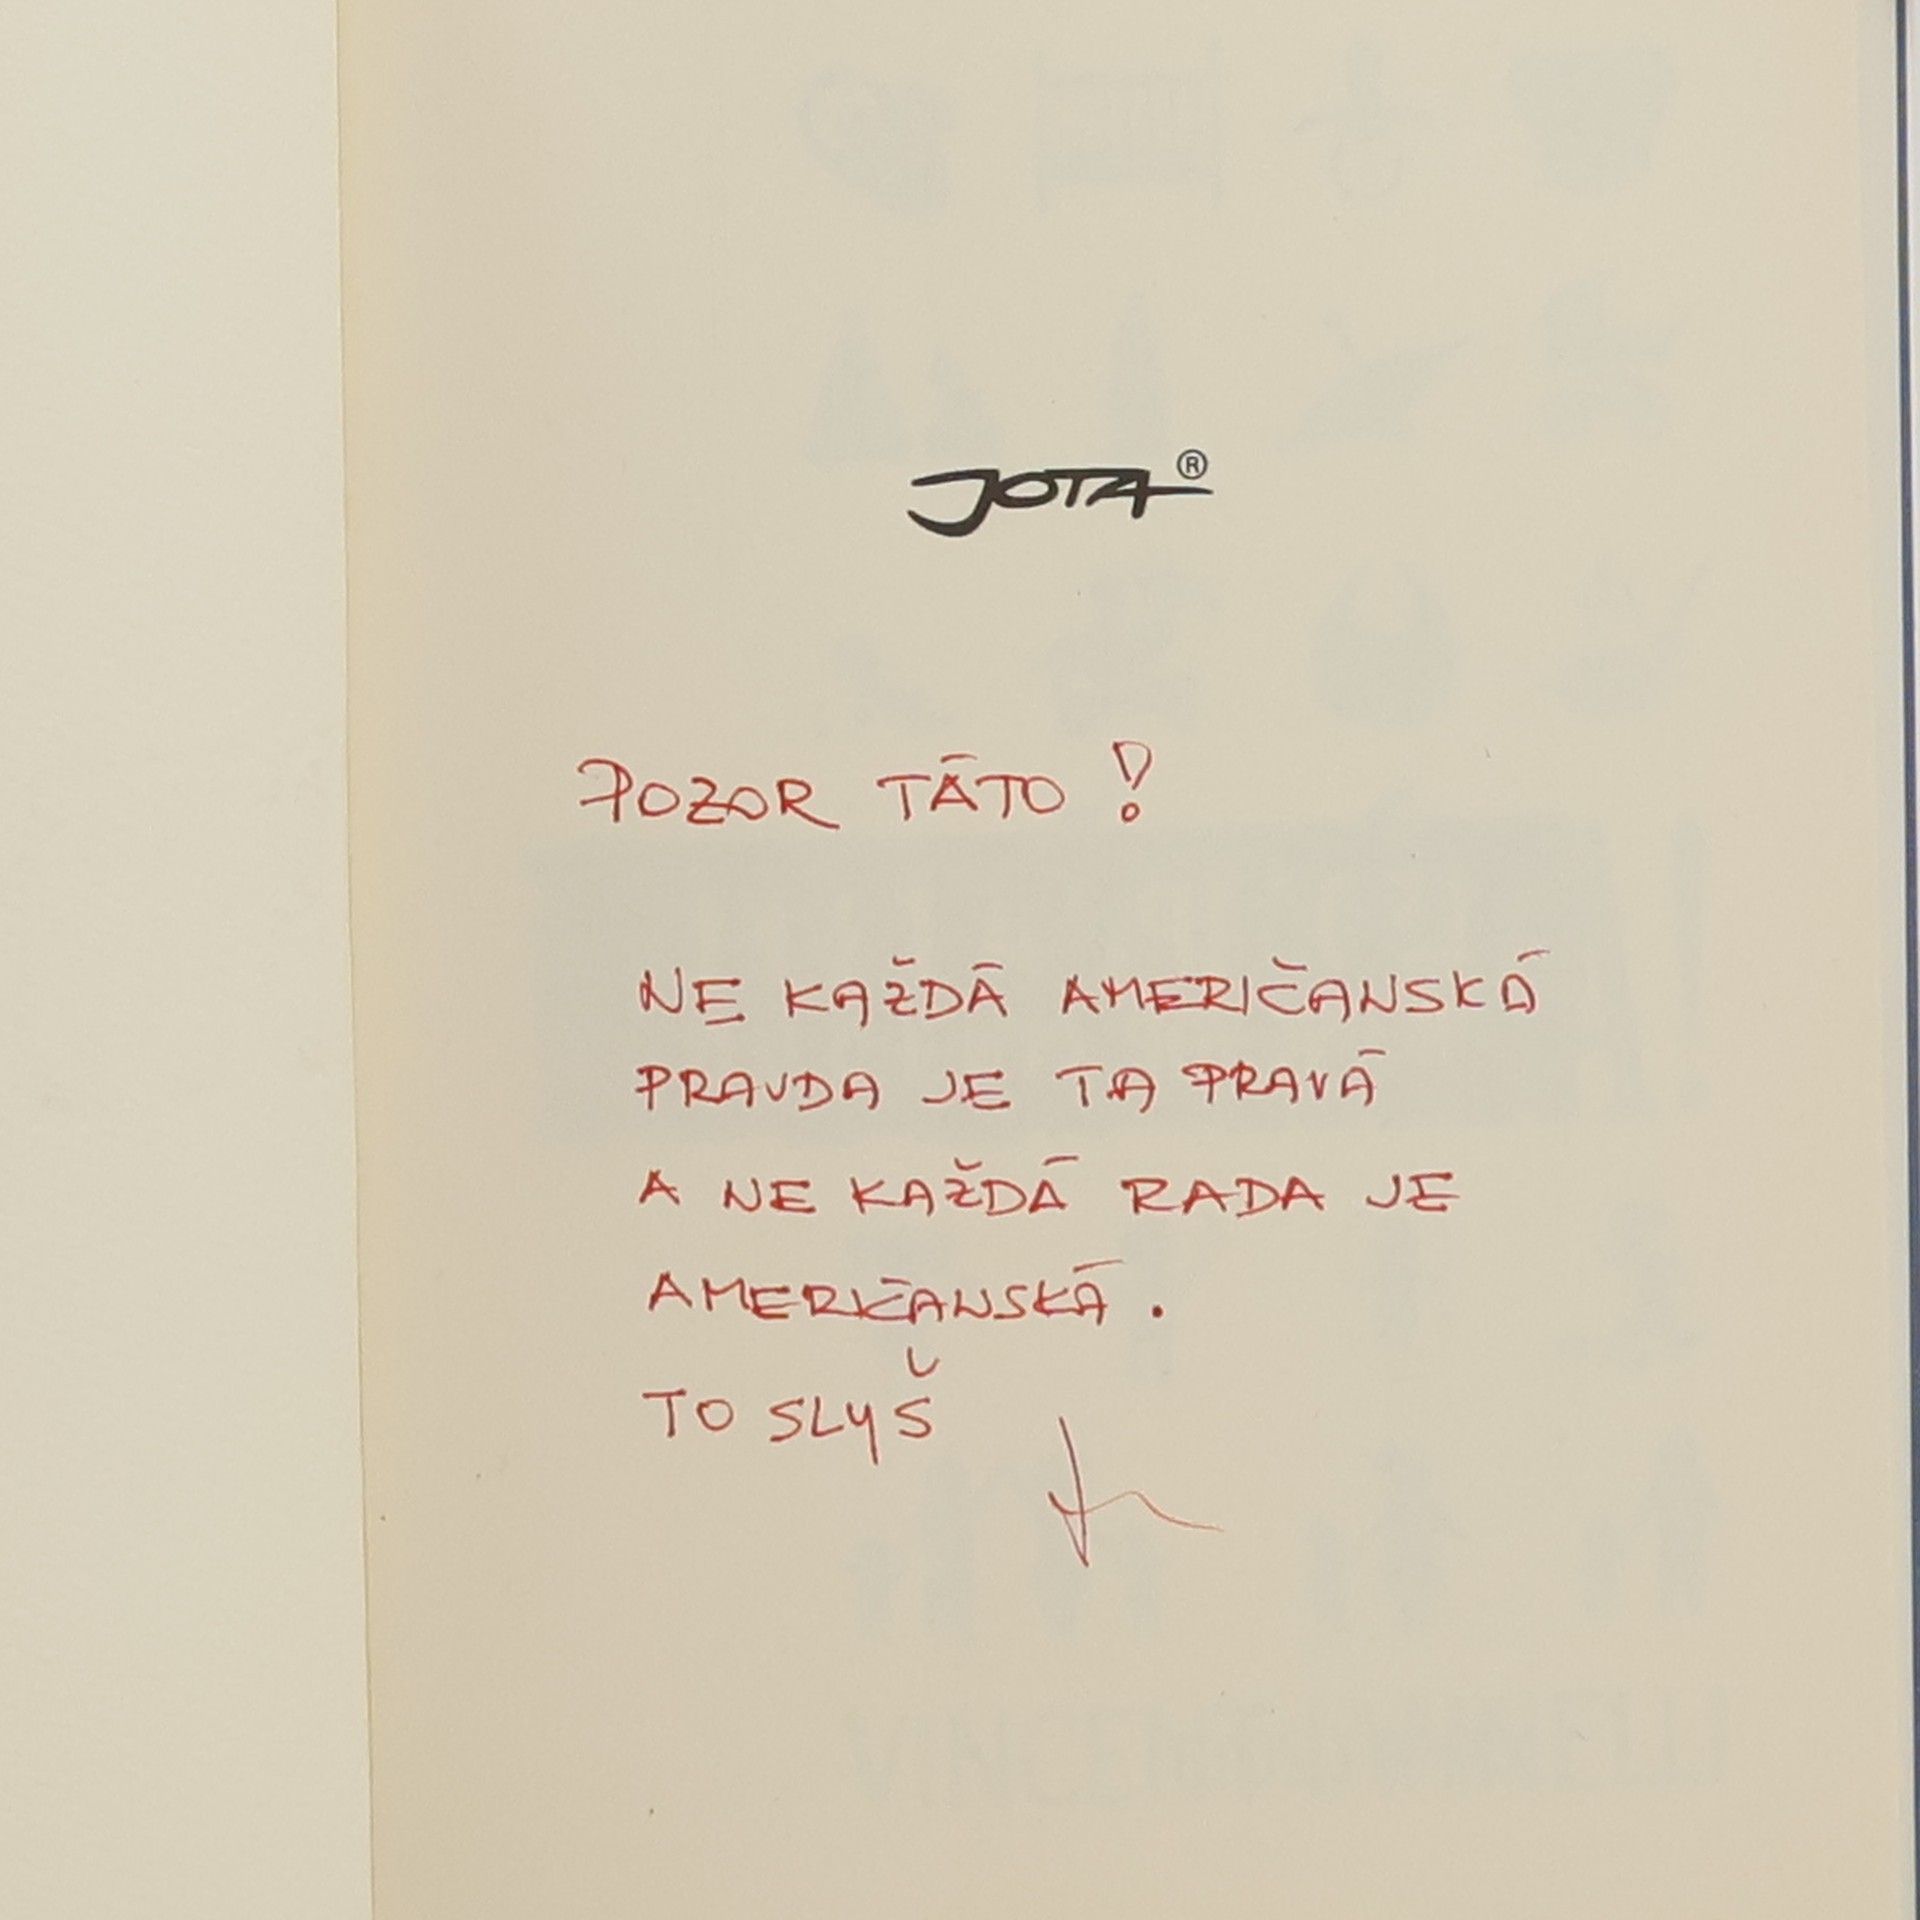 JOTA®
POZOR TÁTO!
NE KAŽDÁ AMERIČANSKÁ
PRAVDA JE TA PRAVÁ
A NE KAŽDÁ RADA JE
AMERIČANSKÁ.
TO SLYŠ